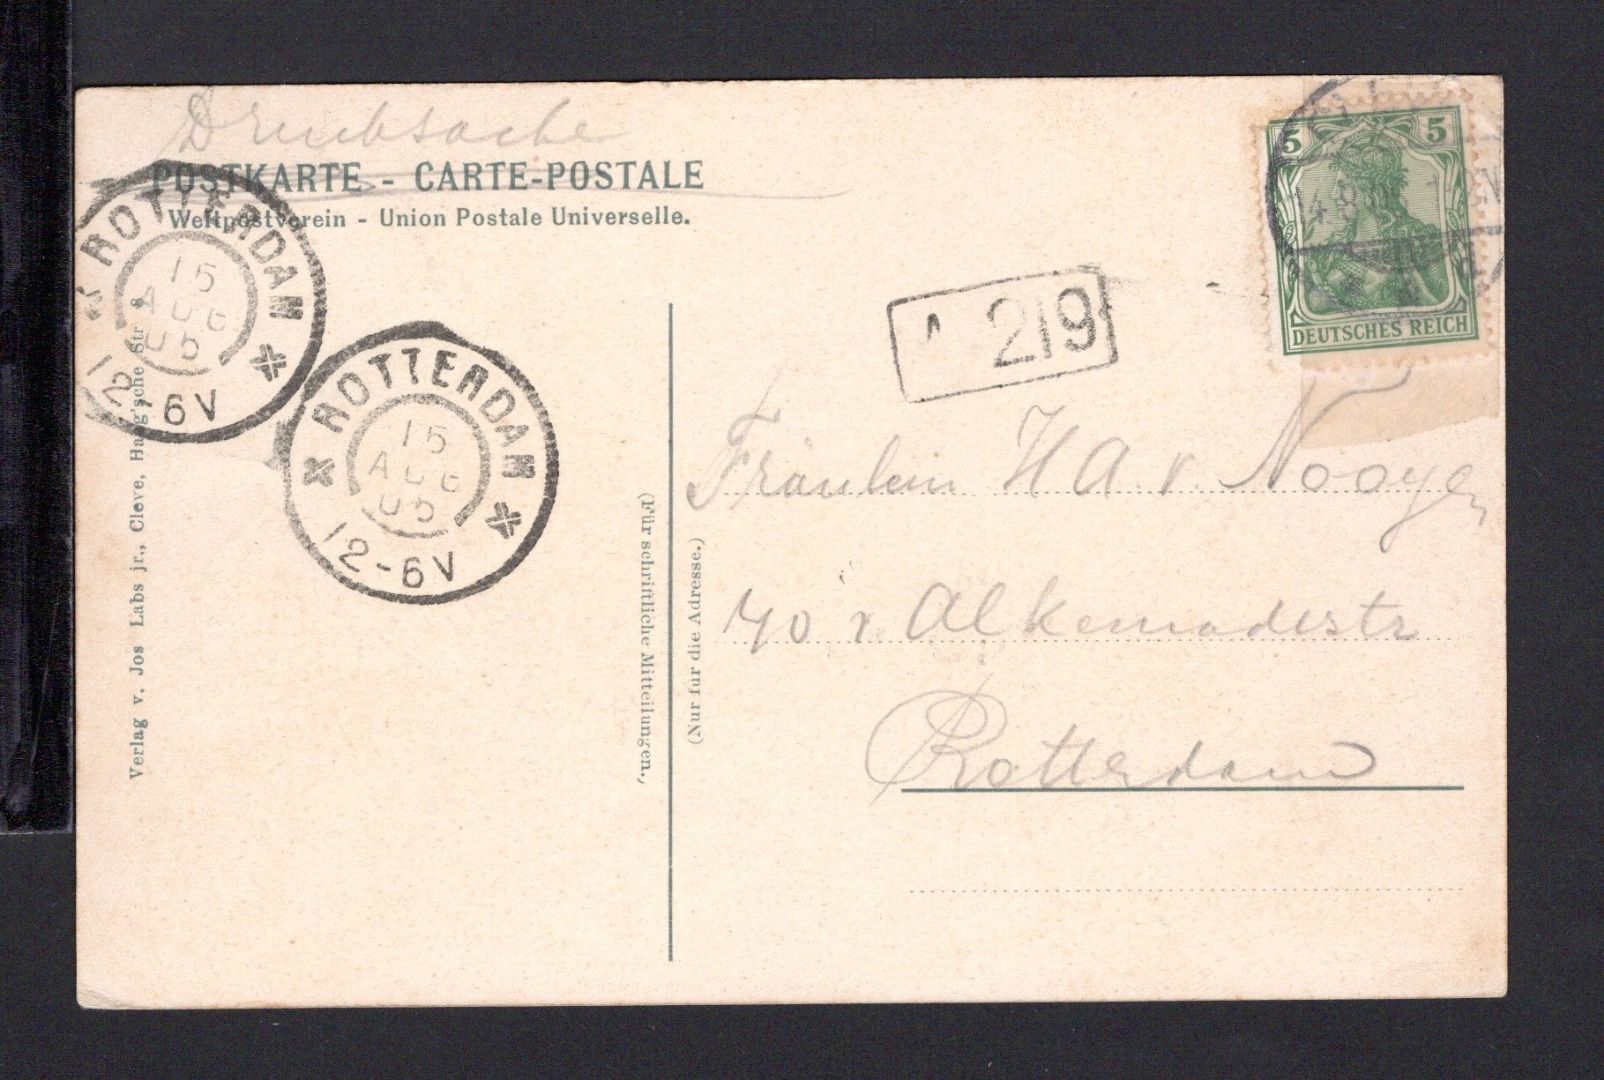 Drucksache
POSTKARTE - CARTE-POSTALE
Weltpostverein - Union Postale Universelle.
5 5
DEUTSCHES REICH
14.8
ROTTERDAM
15
AUG
05
12-6V
ROTTERDAM
15
AUG
05
12-6V
A 219
Verlag v. Jos Labs jr., Cleve, Haag'sche Str 8
(Für schriftliche Mitteilungen.)
(Nur für die Adresse.)
Fräulein H A v. Nooyen
40 v. Alkemadestr
Rotterdam